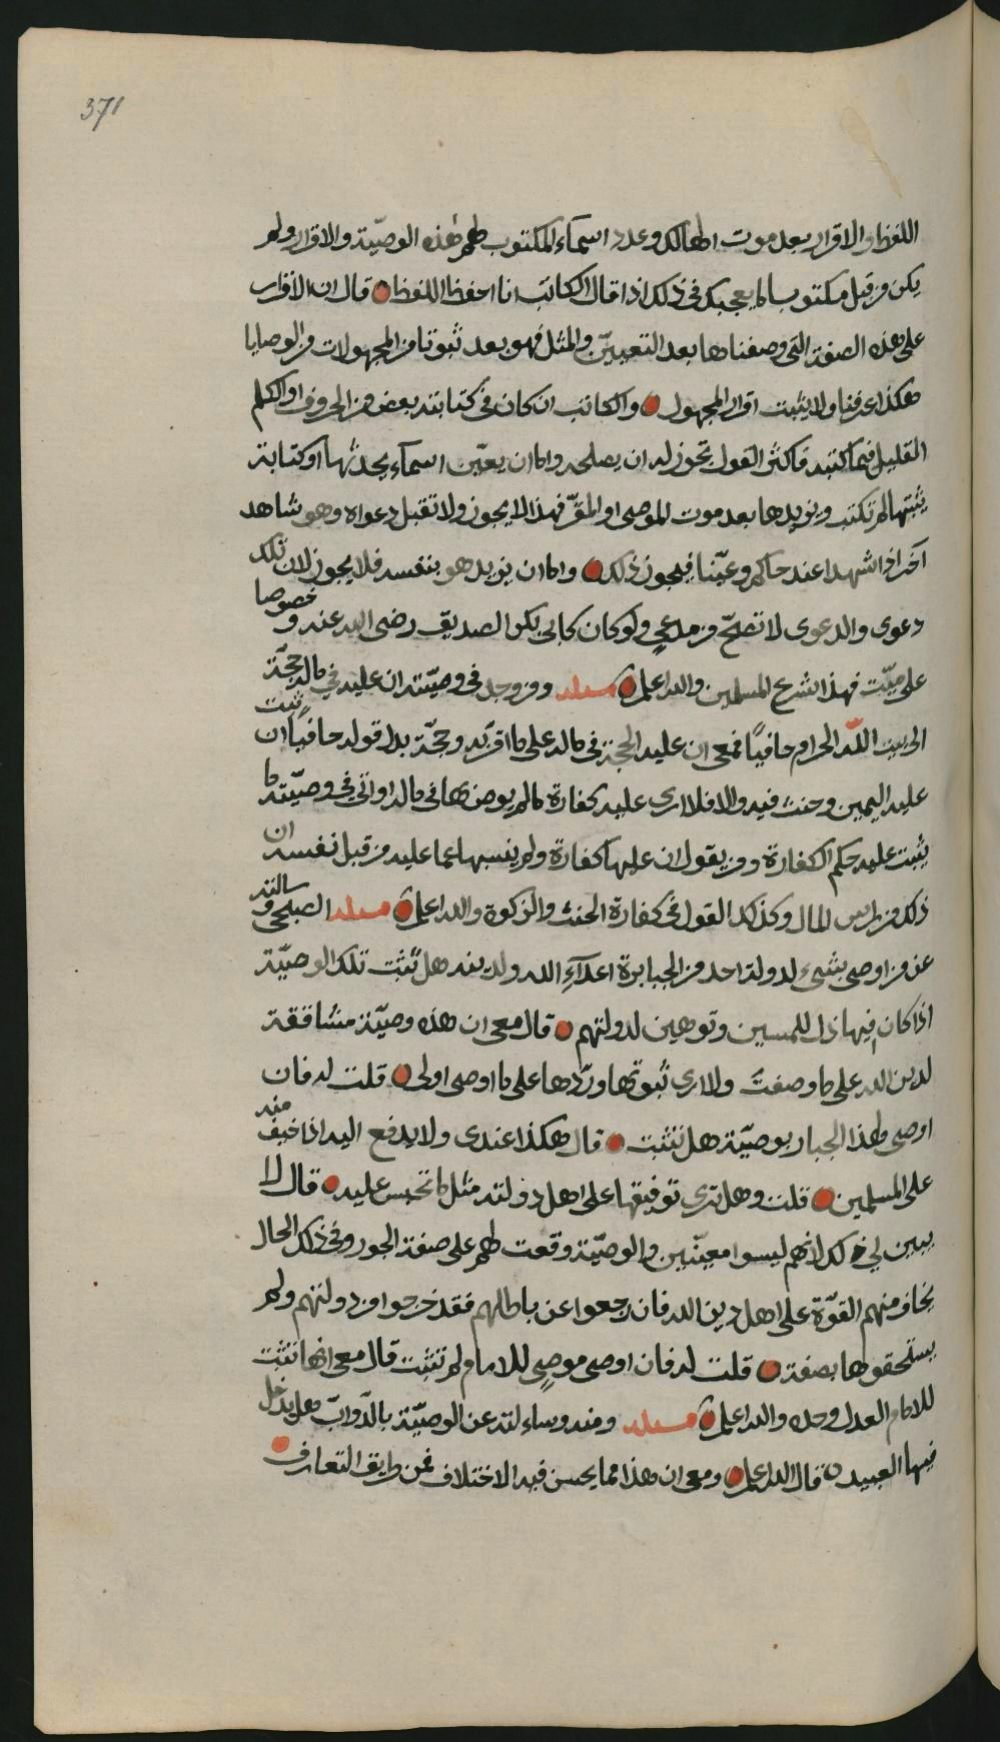 371
اللفظ او الاقرار بعد موت الهالك وعدد اسمآء المكتوب لهم هذه الوصيّة والاقرار ولم
يكن من قبل مكتوبا ما يعجبك في ذلك اذا قال الكاتب انا احفظ اللفظ قال ان الاقرار
على هذه الصفة التي وصفناها بعد التعيين والمثل فهو بعد ثبوتا من المجهولات من الوصايا
هكذا عرفنا ولا يثبت اقرار المجهول والكاتب ان كان في كتابته بعض من الحروف او الكلم
القليل فيما كتبه فاكثر القول تجوز له ان يصلحه واما ان يعيّن اسمآء يحدثها او كتابة
يثبتها لم تكتب ويزيدها بعد موت الموصي او المقرّ فهذا لا يجوز ولا تقبل دعواه وهو شاهد
آخر اذا شهدا عند حاكم وعيّنا فيجوز ذلك واما ان يزيد هو بنفسه فلا يجوز لان تلك
دعوى والدعوى لا تصحّ من مدعي ولو كان كابي بكر الصديق رضي الله عنه وخصوصا
على ميّت فهذا شرع المسلمين والله اعلم مسئلة ومن وجد في وصيّته ان عليه في ماله حجّة
الى بيت اللّه الحرام حافيًا فمعي ان عليه الحجة في ماله على ما اقرّ به وحجّة بدل قوله حافيًا ان ثبت
عليه اليمين وحنث فيه والا فلا ارى عليه كفارة ما لم يوص بها في ماله او اتى في وصيّته ما
يثبت عليه حكم الكفارة ومن يقول ان عليها كفارة ولم ينسبها عما عليه من قبل نفسه ان
ذلك من راس المال وكذلك القول في كفارة الحنث والزكوة والله اعلم مسئلة الصبحي وسالته
عن من اوصى بشيء لدولة احد من الجبابرة اعدآءِ الله ولدينه هل تثبت تلك الوصيّة
اذا كان فيها ذل للمسلمين وتوهين لدولتهم قال معي ان هذه وصيّة مشاققة
لدين الله على ما وصفتَ ولا ارى ثبوتها وردّها على ما اوصى اولى قلت له فان
اوصى لهذا الجبار بوصيّة هل تثبت قال هكذا عندى ولا يدفع اليه اذا خيف منه
على المسلمين قلت وهل ترى توفيقها على اهل دولته مثل ما تحبس عليه قال لا
يبين لي ذلك لانهم ليسوا معيّنين والوصيّة وقعت لهم على صفة الجور وفي ذلك الحال
يخاف منهم القوّة على اهل دين الله فان رجعوا عن باطلهم فقد خرجوا من دولتهم ولم
يستحقوها بصفة قلت له فان اوصى موصٍ للامام ولم تثبت قال معي انها تثبت
للامام العدل وحده والله اعلم مسئلة ومنه وساءلته عن الوصيّة بالدّوابّ هل يدخل
فيها العبيد قال الله اعلم ومعي ان هذا مما يحسن فيه الاختلاف فمن طريق التعارف